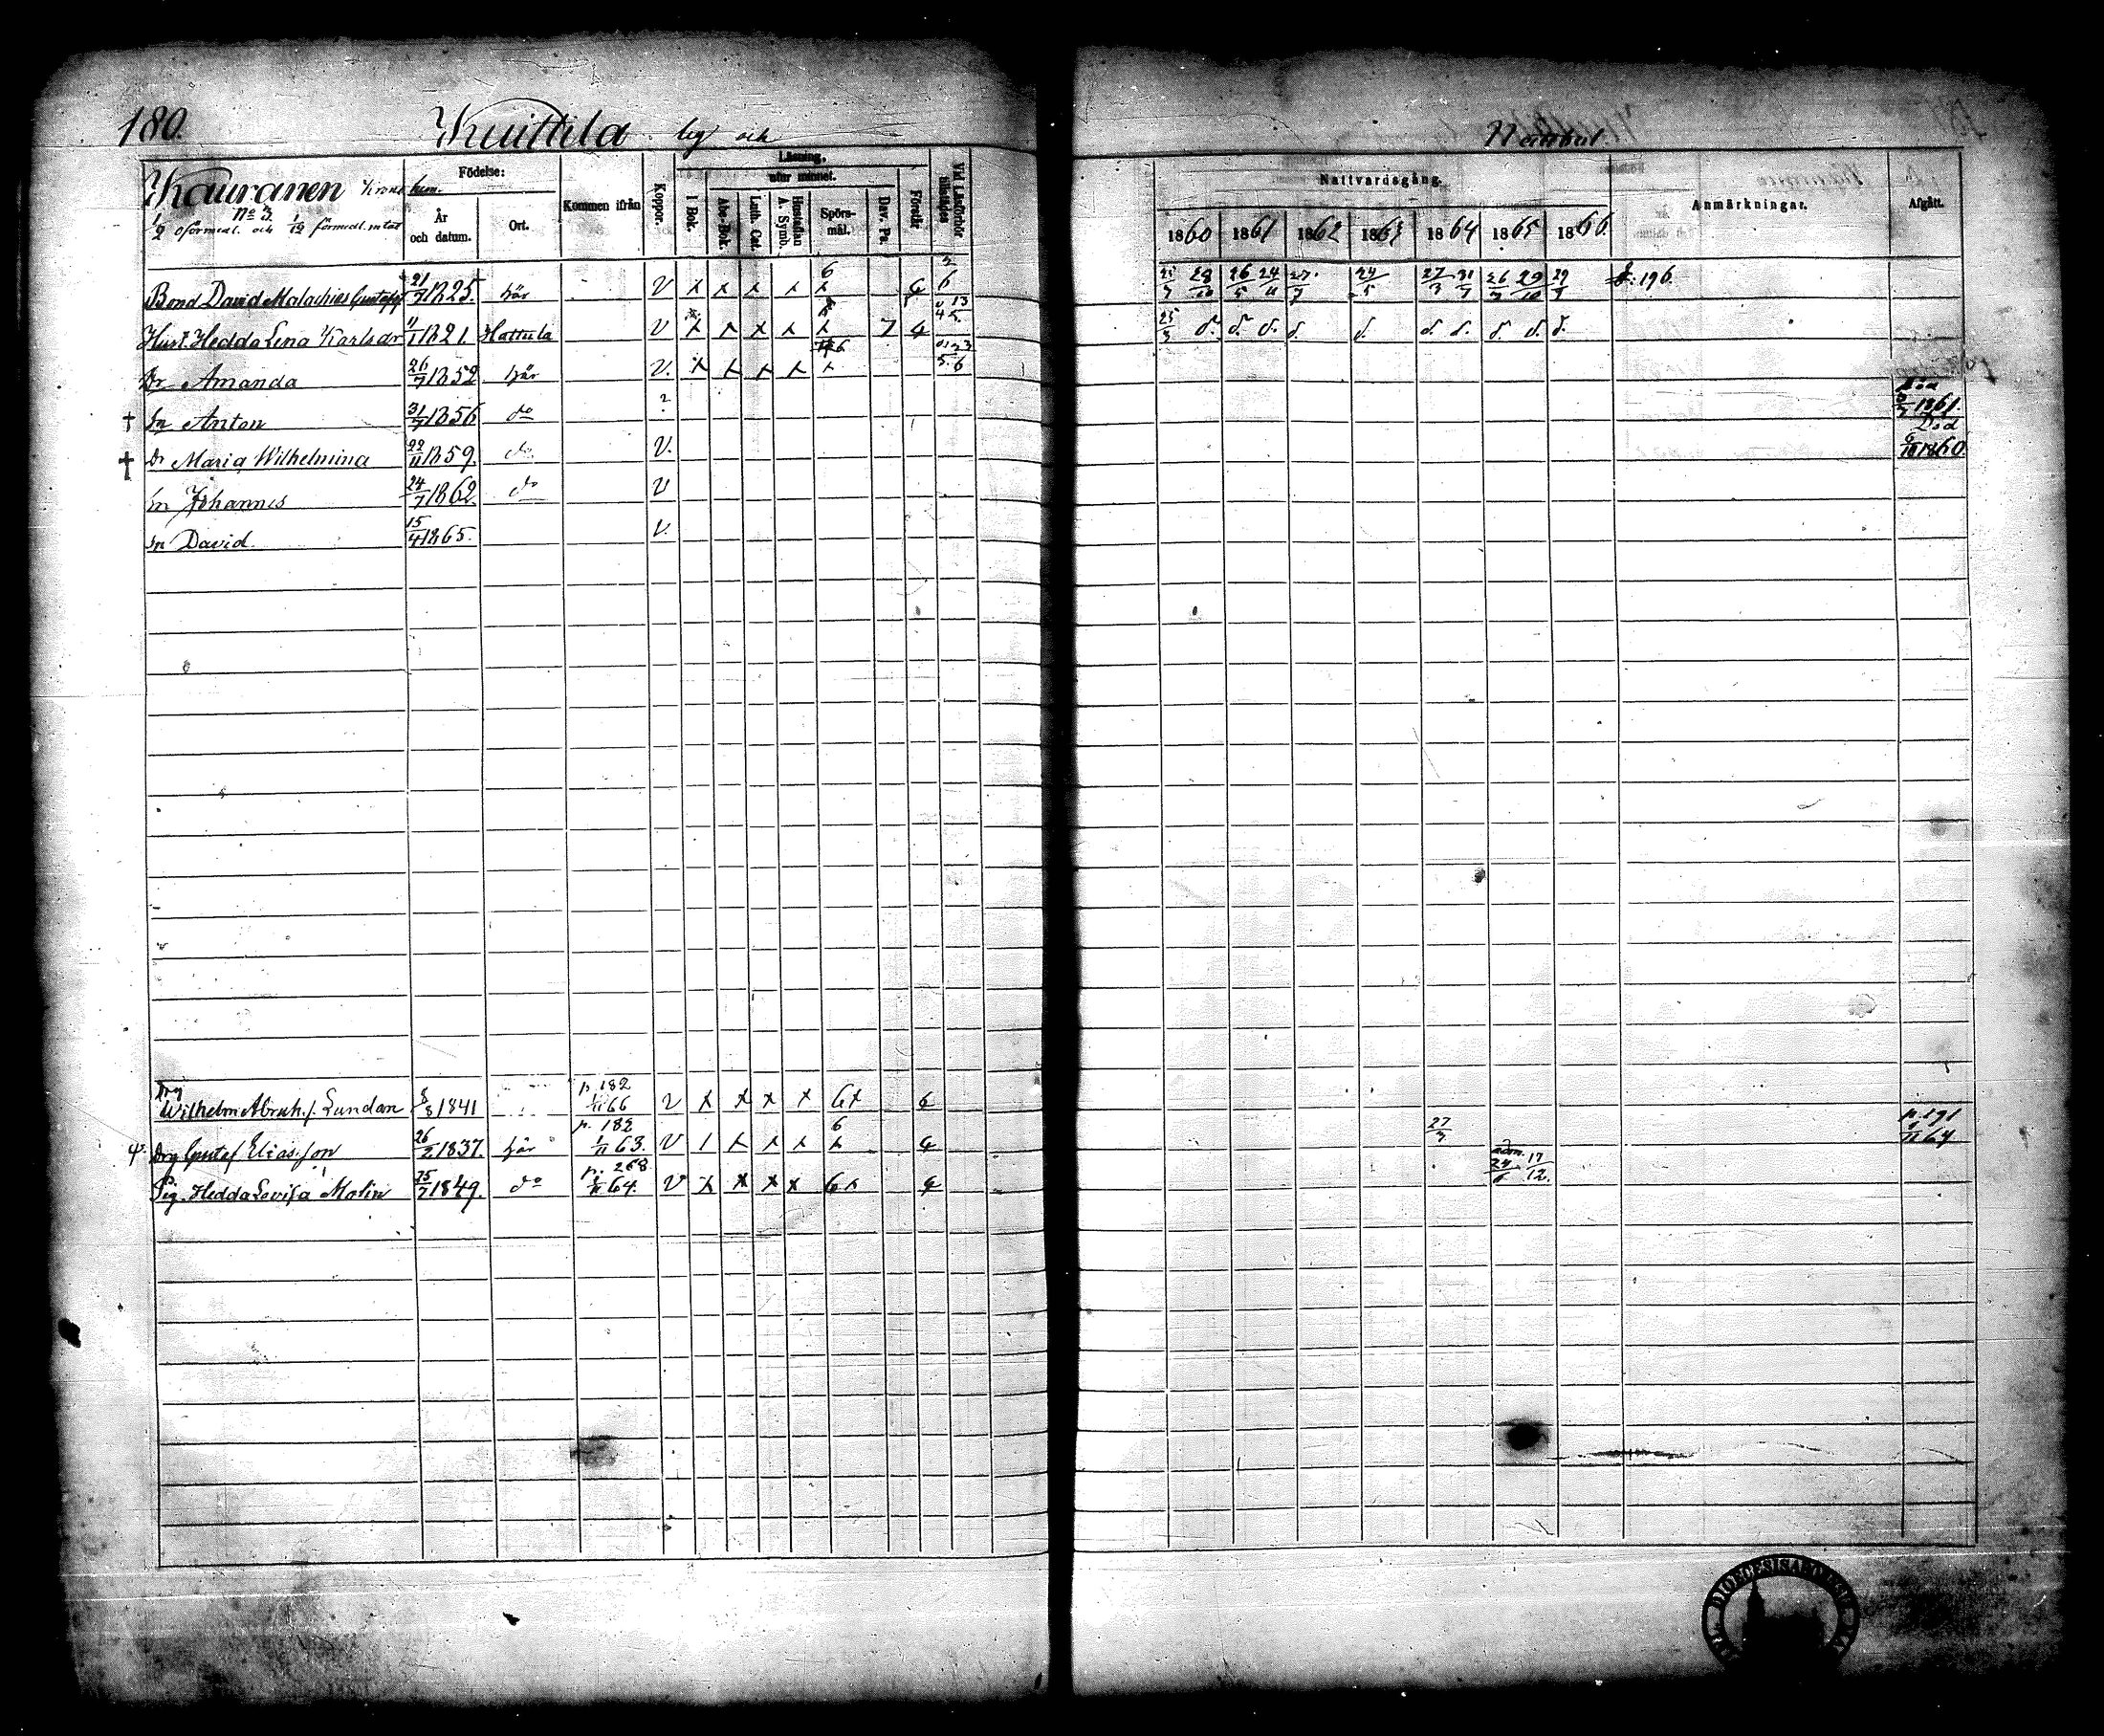 180. Kuittila by och Nattbul.
Kauranen Krono hem.
No 3.
1/2 oförmedl. och 1/12 förmedl. mtal
Födelse: År och datum. Ort. Kommen ifrån Koppor. Läsning. I Bok. utur minnet. Abc-Bok. Luth. Cat. Hustaflan A. Symb. Spörs-mål. Dav. Ps. Förstår Vid Läsförhör tillstädes
Nattvardsgång. Anmärkningar. Afgått.
1860 1861 1862 1863 1864 1865 1866
Bond David Malachias Gustafss 21/7 1825. här V 6 6 28/10 26/5 24/11 27/7 24/5 27/3 31/7 26/7 29/10 29/7 196.
Hust. Hedda Lena Karlsdr 11/1 1821. Hattula V 7 4 25/3 d. d. d. d. d. d. d. d. d. d.
Dr Amanda 26/7 1852 här V.
† Sn Anton 31/7 1856 do ? Död 1861.
† Dr Maria Wilhelmina 22/11 1859. do V. Död 6/10 1860
Sn Johannes 24/7 1862 do V
Sn David. 15/4 1865. V.
Drg Wilhelm Abrah.s. Lundan 8/8 1841 p. 182 1/11 66 V 6 6
Drg Gustef Eliasson 26/2 1837. här p. 182 1/11 63. V 6 4 27/3 p. 191 1/11 64
Pig. Hedda Lovisa Malin 25/7 1849. do p. 268 1/11 64. V 6 4 adm. 24/6 17/12.